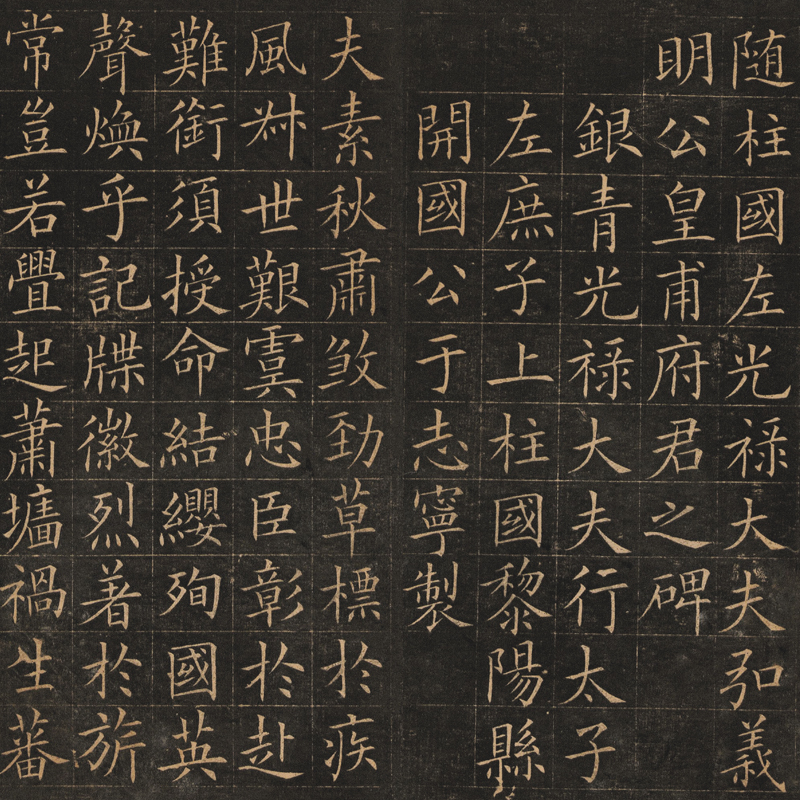 随柱國左光祿大夫弘義
明公皇甫府君之碑
銀青光祿大夫行太子
左庶子上柱國黎陽縣
開國公于志寧製
夫素秋肅煞勁草標於疾
風叶世艱虞忠臣彰於赴
難銜須授命結纓殉國英
聲煥乎記牒徽烈著於旂
常豈若舋起蕭墻禍生蕃